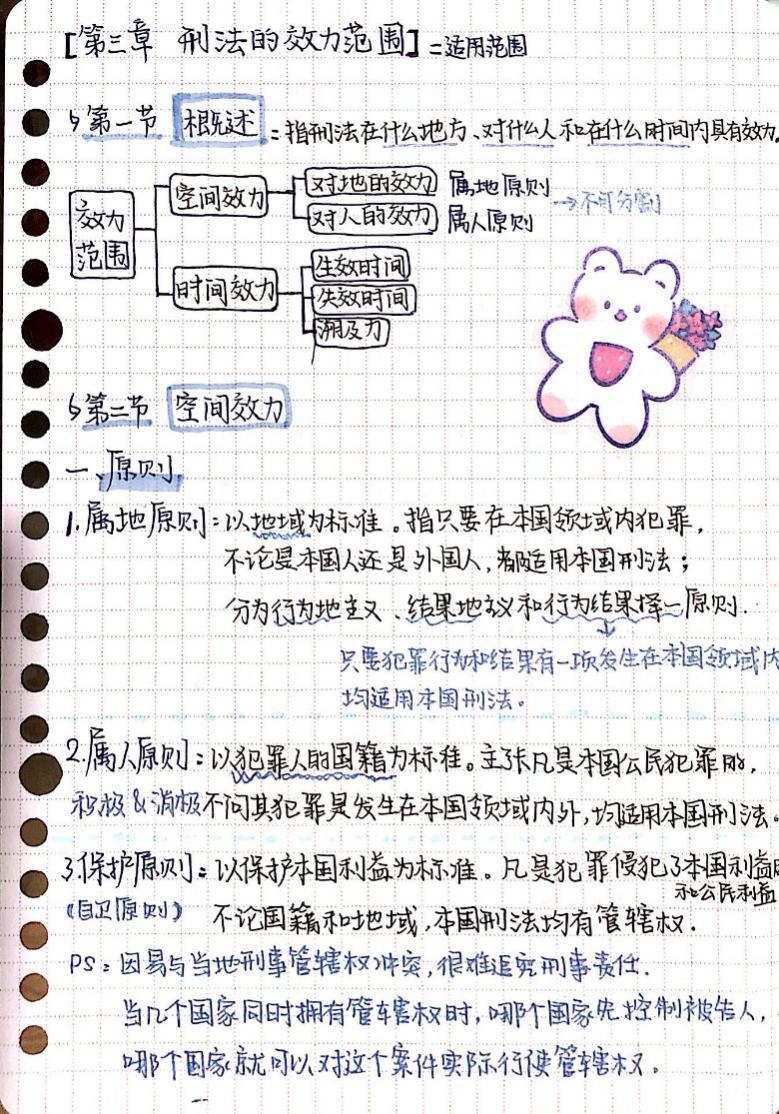 [第三章 刑法的效力范围] = 适用范围
↳第一节 概述 = 指刑法在什么地方、对什么人和在什么时间内具有效力。
效力范围
空间效力
对地的效力 属地原则
对人的效力 属人原则
→不可分割
时间效力
生效时间
失效时间
溯及力
↳第二节 空间效力
一、原则
1.属地原则:以地域为标准。指只要在本国领域内犯罪,
不论是本国人还是外国人,都适用本国刑法;
分为行为地主义、结果地主义和行为结果择一原则.
只要犯罪行为和结果有一项发生在本国领域内
均适用本国刑法。
2.属人原则:以犯罪人的国籍为标准。主张凡是本国公民犯罪的,
积极&消极 不问其犯罪是发生在本国领域内外,均适用本国刑法。
3.保护原则:以保护本国利益为标准。凡是犯罪侵犯了本国利益
和公民利益
(自卫原则) 不论国籍和地域,本国刑法均有管辖权.
PS:因易与当地刑事管辖权冲突,很难追究刑事责任.
当几个国家同时拥有管辖权时,哪个国家先控制被告人,
哪个国家就可以对这个案件实际行使管辖权。